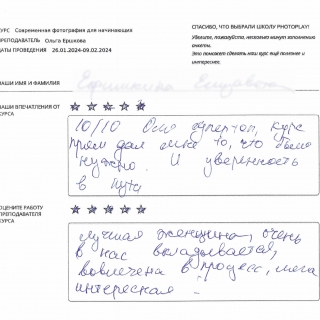 КУРС Современная фотография для начинающих
ПРЕПОДАВАТЕЛЬ Ольга Ершкова
ДАТЫ ПРОВЕДЕНИЯ 26.01.2024-09.02.2024
СПАСИБО, ЧТО ВЫБРАЛИ ШКОЛУ PHOTOPLAY!
Уделите, пожалуйста, несколько минут заполнению
анкеты.
Это поможет сделать наш курс ещё полезнее и
интереснее.
ВАШИ ИМЯ И ФАМИЛИЯ
ВАШИ ВПЕЧАТЛЕНИЯ ОТ
КУРСА
10/10 Оля супертоп, курс
прям дал мне то, что было
нужно. И уверенность
в пути
ОЦЕНИТЕ РАБОТУ
ПРЕПОДАВАТЕЛЯ
КУРСА
лучшая женщина, очень
в нас вкладывается,
вовлечена в процесс, мега
интересная